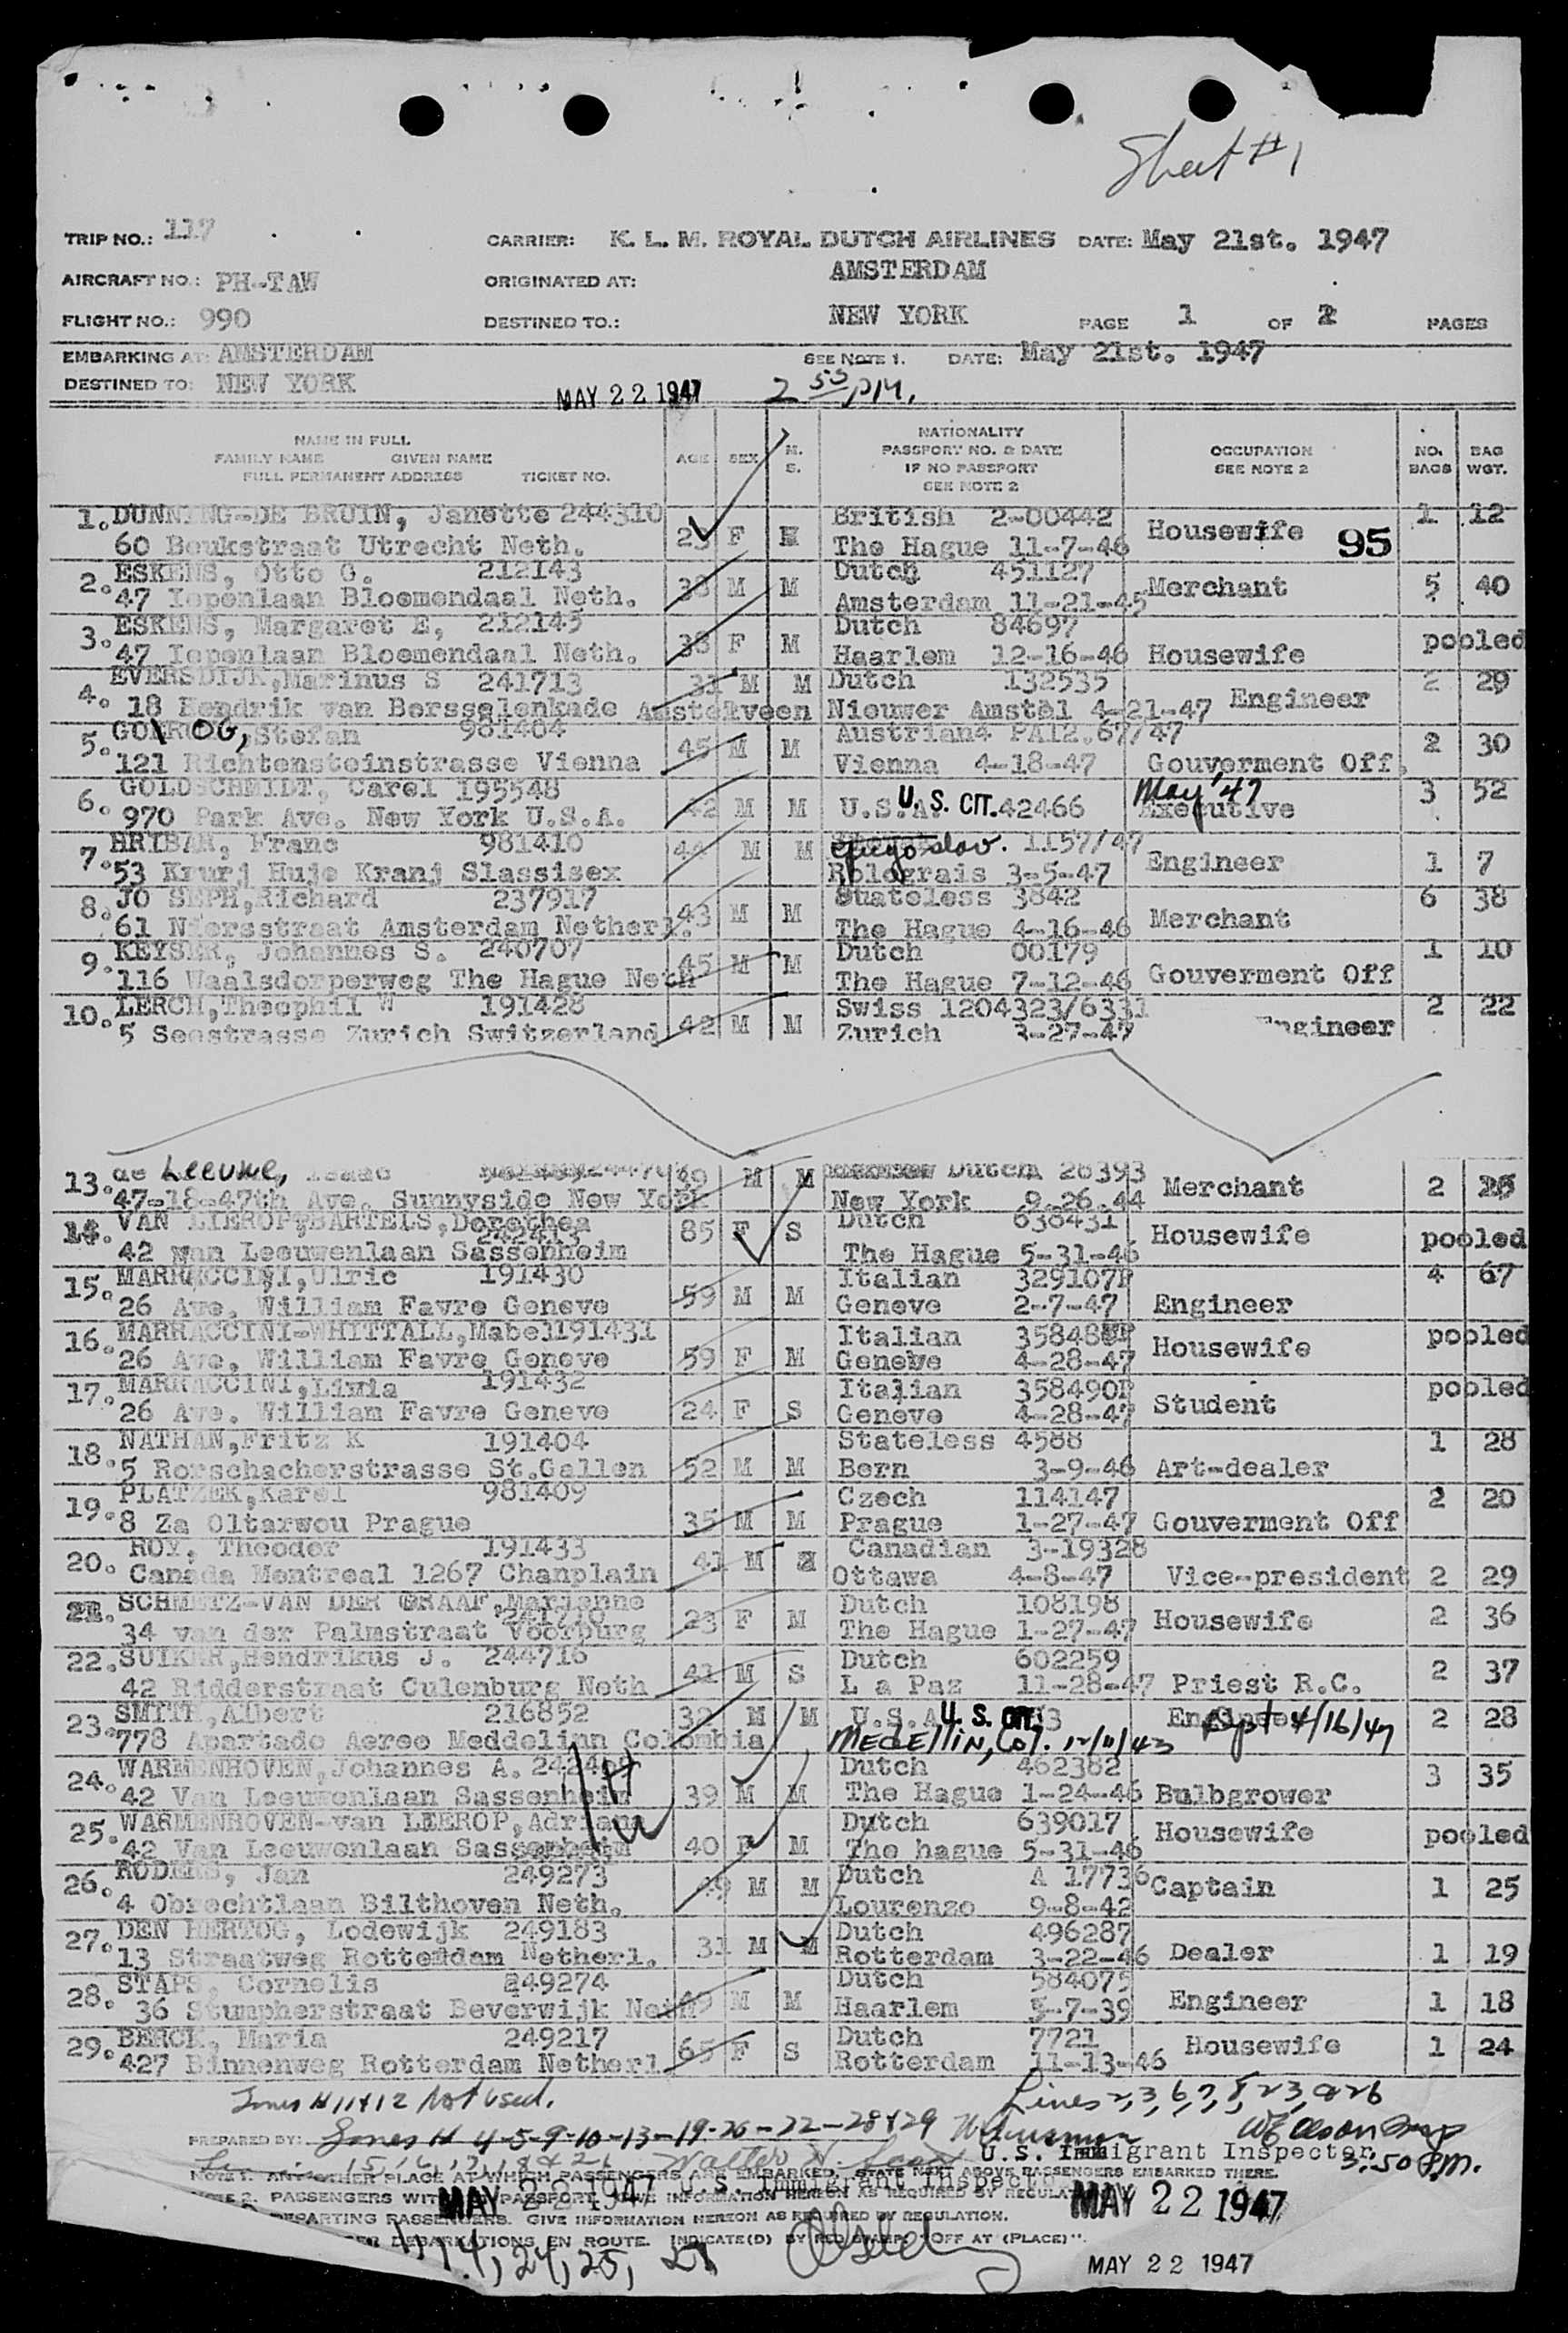 Sheet #1
TRIP NO.: 117 CARRIER: K. L. M. ROYAL DUTCH AIRLINES DATE: May 21st. 1947
AIRCRAFT NO.: PH-TAW ORIGINATED AT: AMSTERDAM
FLIGHT NO.: 990 DESTINED TO.: NEW YORK PAGE 1 OF 2 PAGES
EMBARKING AT: AMSTERDAM SEE NOTE 1. DATE: May 21st. 1947
DESTINED TO: NEW YORK MAY 22 1947 2 55 PM.
NAME IN FULL
FAMILY NAME GIVEN NAME
FULL PERMANENT ADDRESS TICKET NO.
AGE SEX M. S.
NATIONALITY
PASSPORT NO. & DATE
IF NO PASSPORT
SEE NOTE 2
OCCUPATION
SEE NOTE 2
NO. BAGS
BAG WGT.
1. DUNNING-DE BRUIN, Janette 244310 British 2-00442 1 12
60 Beukstraat Utrecht Neth. 23 F M The Hague 11-7-46 Housewife 95
2. ESKENS, Otto G. 212143 Dutch 451127
47 Iepenlaan Bloemendaal Neth. 38 M M Amsterdam 11-21-45 Merchant 5 40
3. ESKENS, Margaret E, 212145 Dutch 84697
47 Iepenlaan Bloemendaal Neth. 38 F M Haarlem 12-16-46 Housewife pooled
4. EVERSDIJK, Marinus S 241713 31 M M Dutch 132535 2 29
18 Hendrik van Bersselenkade Amstelveen Nieuwer Amstel 4-21-47 Engineer
5. Stefan 981404 Austrian4 PA12.67/47
121 Richtensteinstrasse Vienna 45 M M Vienna 4-18-47 Gouverment Off. 2 30
6. GOLDSCHMIDT, Carel 195548 May '47 3 52
970 Park Ave. New York U.S.A. 42 M M U.S.A. U. S. CIT. 42466 Executive
7. HRIBAR, Franc 981410 44 M M 1157/47
53 Krurj Huje Kranj Slassisex 3-5-47 Engineer 1 7
8. JO SEPH, Richard 237917 Stateless 3842 6 38
61 Niersstraat Amsterdam Netherl. 43 M M The Hague 4-16-46 Merchant
9. KEYSER, Johannes S. 240707 Dutch 00179 1 10
116 Waalsdorperweg The Hague Neth 45 M M The Hague 7-12-46 Gouverment Off
10. LERCH, Theophil W 191428 Swiss 1204323/6331 2 22
5 Seestrasse Zurich Switzerland 42 M M Zurich 3-27-47 Engineer
13. de Leeuwe, Isaac M M Dutch 26393
47-18-47th Ave. Sunnyside New York New York 9.26.44 Merchant 2
14. VAN LIEROP, BARTELS, Dorothea 242413 Dutch 638431
42 van Leeuwenlaan Sassenheim 85 F S The Hague 5-31-46 Housewife pooled
15. MARRACCINI, Ulric 191430 Italian 329107P 4 67
26 Ave. William Favre Geneve 59 M M Geneve 2-7-47 Engineer
16. MARRACCINI-WHITTALL, Mabel 191431 Italian pooled
26 Ave. William Favre Geneve 59 F M Geneve 4-28-47 Housewife
17. MARRACCINI, Livia 191432 Italian 358490P pooled
26 Ave. William Favre Geneve 24 F S Geneve 4-28-47 Student
18. NATHAN, Fritz K 191404 Stateless 4588 1 28
5 Rorschacherstrasse St.Gallen 52 M M Bern 3-9-46 Art-dealer
19. PLATZEK, Karel 981409 Czech 114147 2 20
8 Za Oltarwou Prague 35 M M Prague 1-27-47 Gouverment Off
20. ROY, Theodor 191433 Canadian 3-19328
Canada Montreal 1267 Chanplain 41 M Ottawa 4-8-47 Vice-president 2 29
21. SCHMETZ-VAN DER GRAAF, Marianne 241710 Dutch 108198
34 van der Palmstraat Voorburg 23 F M The Hague 1-27-47 Housewife 2 36
22. SUIKER, Hendrikus J. 244716 Dutch 602259
42 Ridderstraat Culenburg Neth 41 M S L a Paz 11-28-47 Priest R.C. 2 37
23. SMITH, Albert 216852 32 M M U.S.A U. S. CIT. 2 28
778 Apartado Aereo Meddelinn Colombia MEDELLIN, Col. 12/11/43 Dept 4/16/47
24. WARMENHOVEN, Johannes A. Dutch 462382 3 35
42 Van Leeuwenlaan Sassenheim 39 M M The Hague 1-24-46 Bulbgrower
25. WARMENHOVEN-van LEEROP, Adriana Dutch 639017
42 Van Leeuwenlaan Sassenheim 40 F M The hague 5-31-46 Housewife pooled
26. RODERS, Jan 249273 49 M M Dutch A 17736 Captain 1 25
4 Obrechtlaan Bilthoven Neth. Lourenzo 9-8-42
27. DEN HERTOG, Lodewijk 249183 Dutch 496287
13 Straatweg Rotterdam Netherl. 31 M M Rotterdam 3-22-46 Dealer 1 19
28. STAPS, Cornelis 249274 Dutch 584075
36 Stumpherstraat Beverwijk Neth 49 M M Haarlem 5-7-39 Engineer 1 18
29. BERCK, Maria 249217 Dutch 7721
427 Binnenweg Rotterdam Netherl 65 F S Rotterdam 11-13-46 Housewife 1 24
Lines # 11 & 12 Not used. Lines 2, 3, 6, 7, 8, 23, & 26
PREPARED BY: Lines # 4-5-9-10-13-19-20-22-28 & 29
U.S. Immigrant Inspector
3:50 P.M.
NOTE 1. AT WHICH PASSENGERS ARE EMBARKED. STATE NEXT ABOVE PASSENGERS EMBARKED THERE.
U.S. Immigrant Inspector
NOTE 2. PASSENGERS PASSPORT. INFORMATION HEREON AS REQUIRED BY
MAY 22 1947 MAY 22 1947
DEPARTING PASSENGERS. GIVE INFORMATION HEREON AS REQUIRED BY REGULATION.
DEBARKATIONS EN ROUTE. INDICATE(D) BY "OFF AT (PLACE)".
14, 24, 25, 27
MAY 22 1947